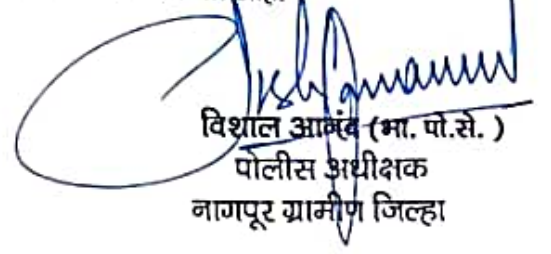 विशाल आनंद (भा. पो.से. )
पोलीस अधीक्षक
नागपूर ग्रामीण जिल्हा